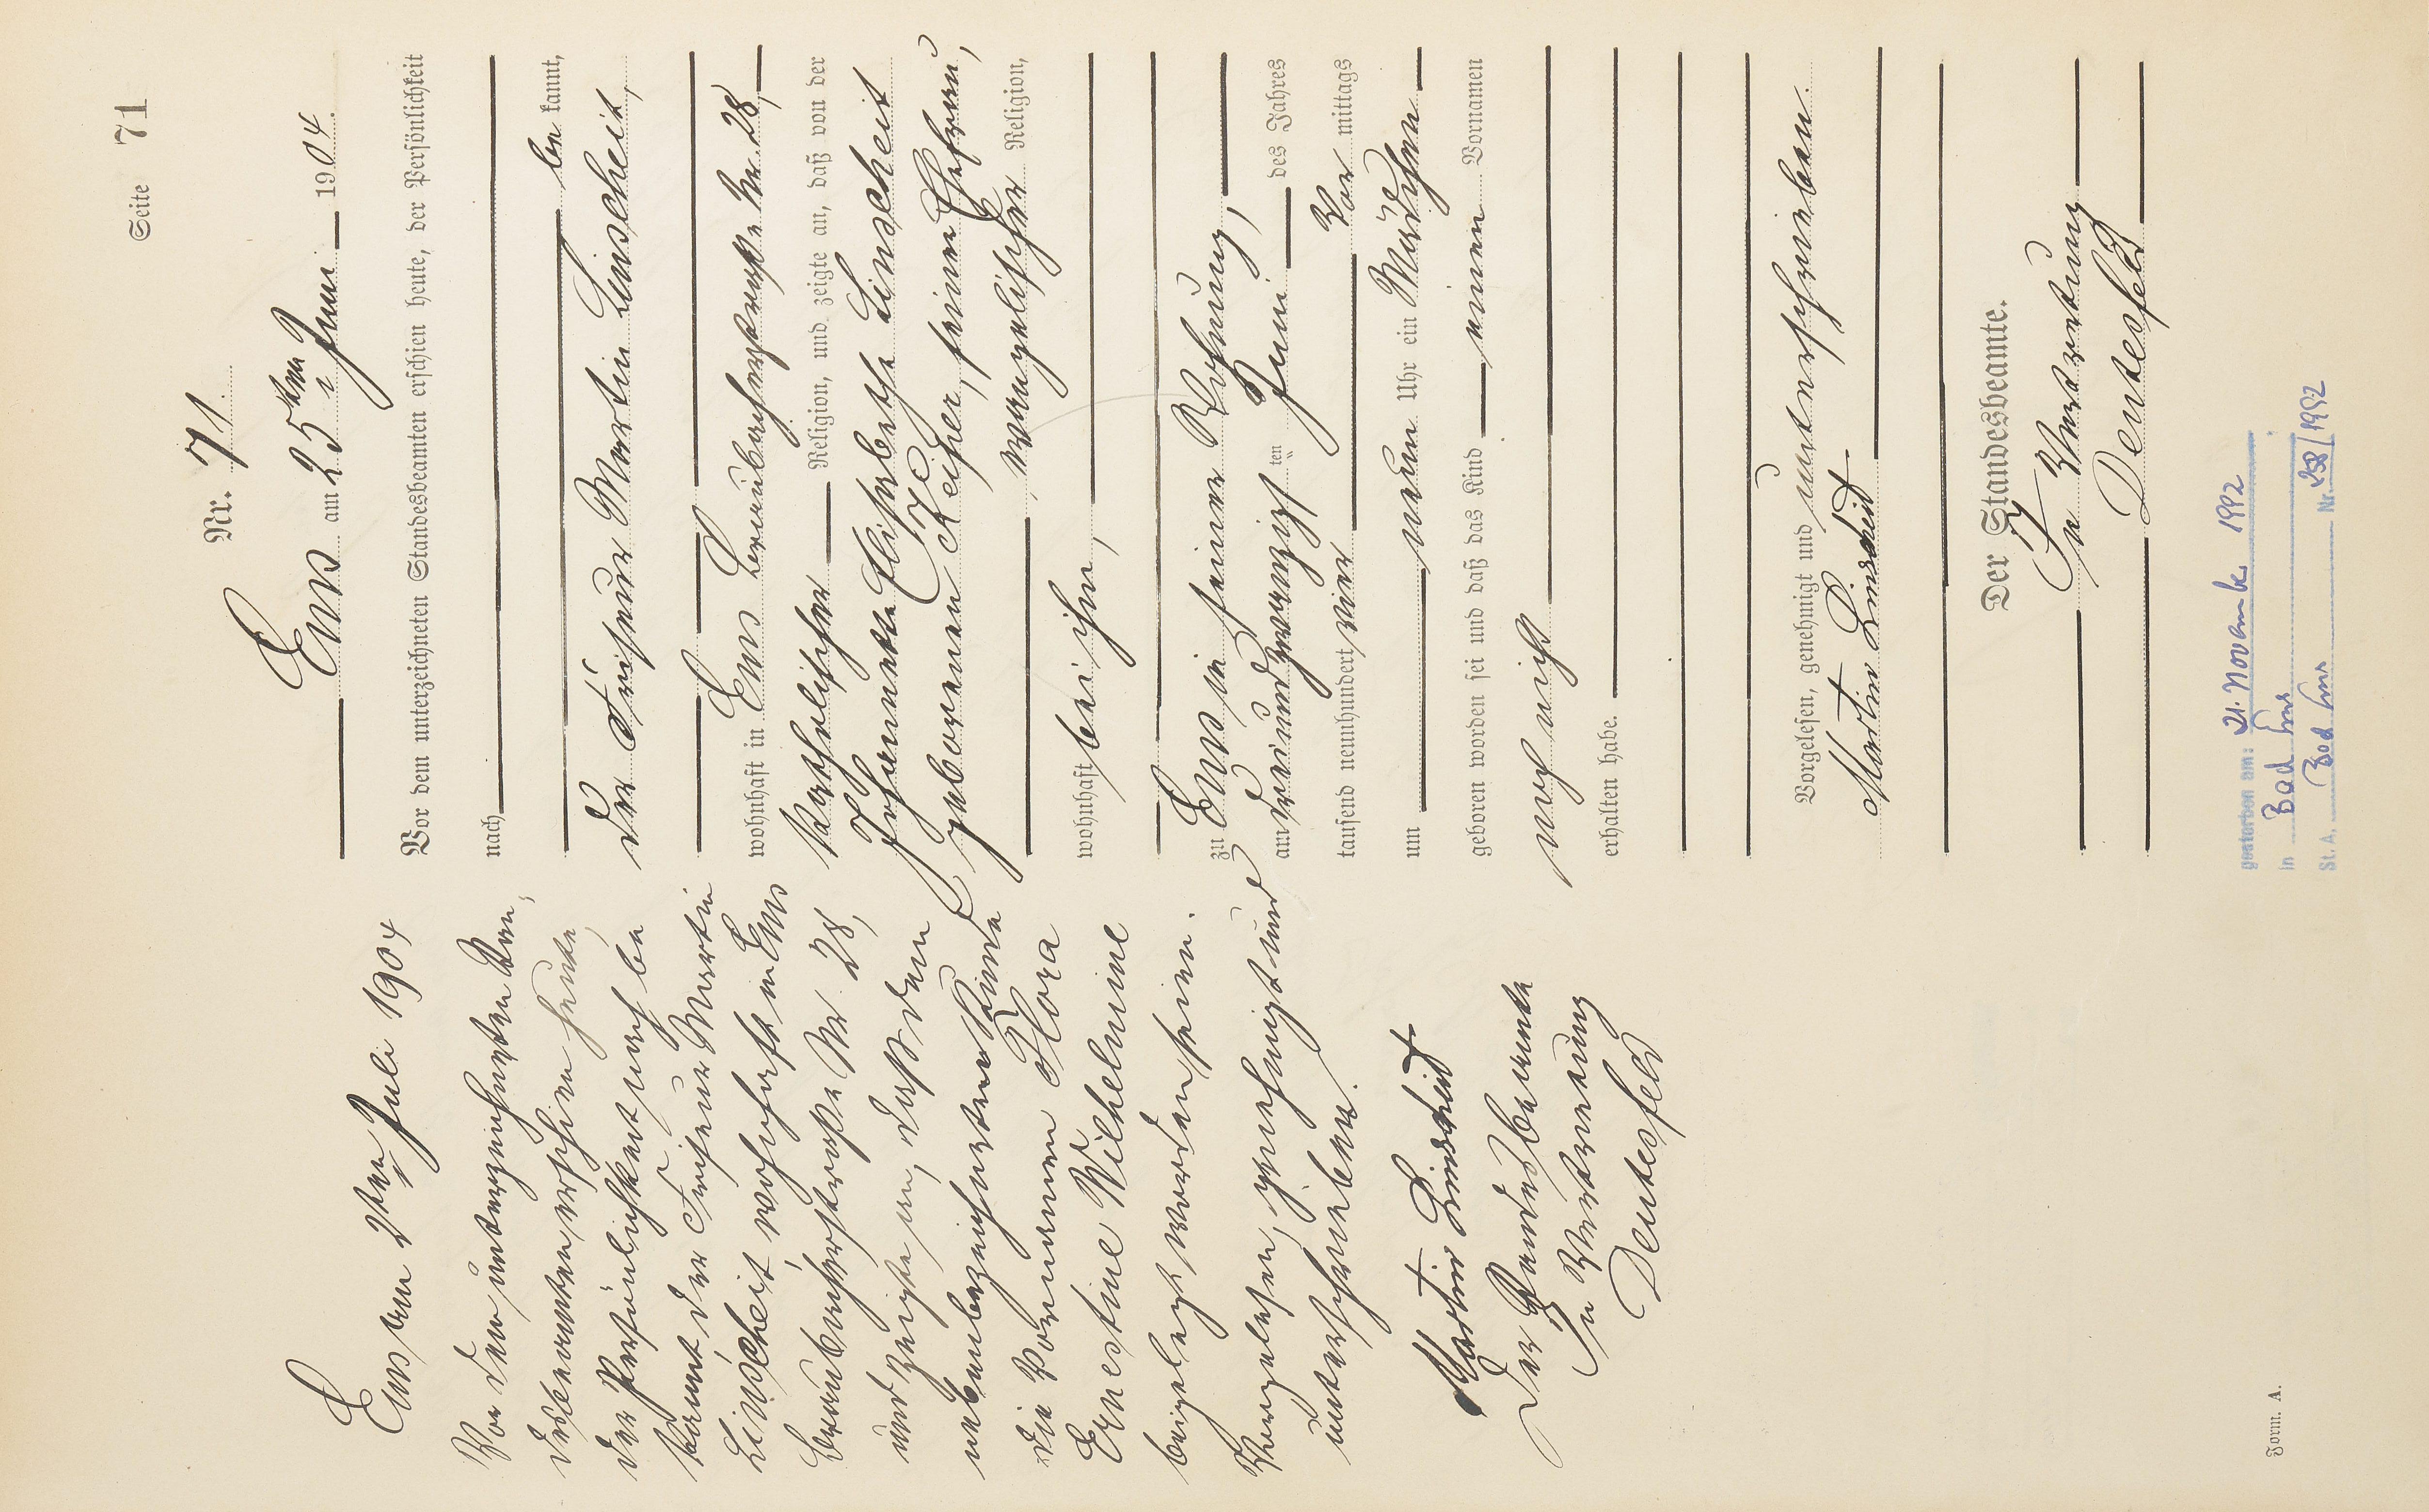 Seite 71
Nr. 71.
Ems am 25ten Juni 1904.
Vor dem unterzeichneten Standesbeamten erschien heute, der Persönlichkeit
nach
be kannt,
der Friseur Martin Linscheit,
wohnhaft in Ems Braubacherstraße Nr. 28,
katholischer Religion, und zeigte an, daß von der
Johannette Elisabethe Linscheit
geborenen Keiper, seiner Ehefrau,
evangelischer Religion,
wohnhaft bei ihm,
zu Ems in seiner Wohnung,
am dreiundzwanzigsten Juni des Jahres
tausend neunhundert vier Vor mittags
um neun Uhr ein Mädchen
geboren worden sei und daß das Kind einen Vornamen
noch nicht
erhalten habe.
Vorgelesen, genehmigt und unterschrieben.
Martin Linscheid
Der Standesbeamte.
In Vertretung
Deutesfeld
Ems am 2ten Juli 1904
Vor dem unterzeichneten Stan-
desbeamten erschien heute,
der Persönlichkeit nach be
kannt, der Friseur Martin
Linscheit, wohnhaft in Ems
Braubacherstraße Nr 28,
und zeigte an, daß dem
nebenbezeichneten Kinde
die Vornamen Flora
Ernestine Wilhelmine
beigelegt worden seien.
Vorgelesen, genehmigt und
unterschrieben.
Martin Linscheid
Der Standesbeamte
In Vertretung
Deutesfeld
gestorben am: 21. November 1992
in Bad Ems
St. A. Bad Ems Nr. 258/1992
Form. A.